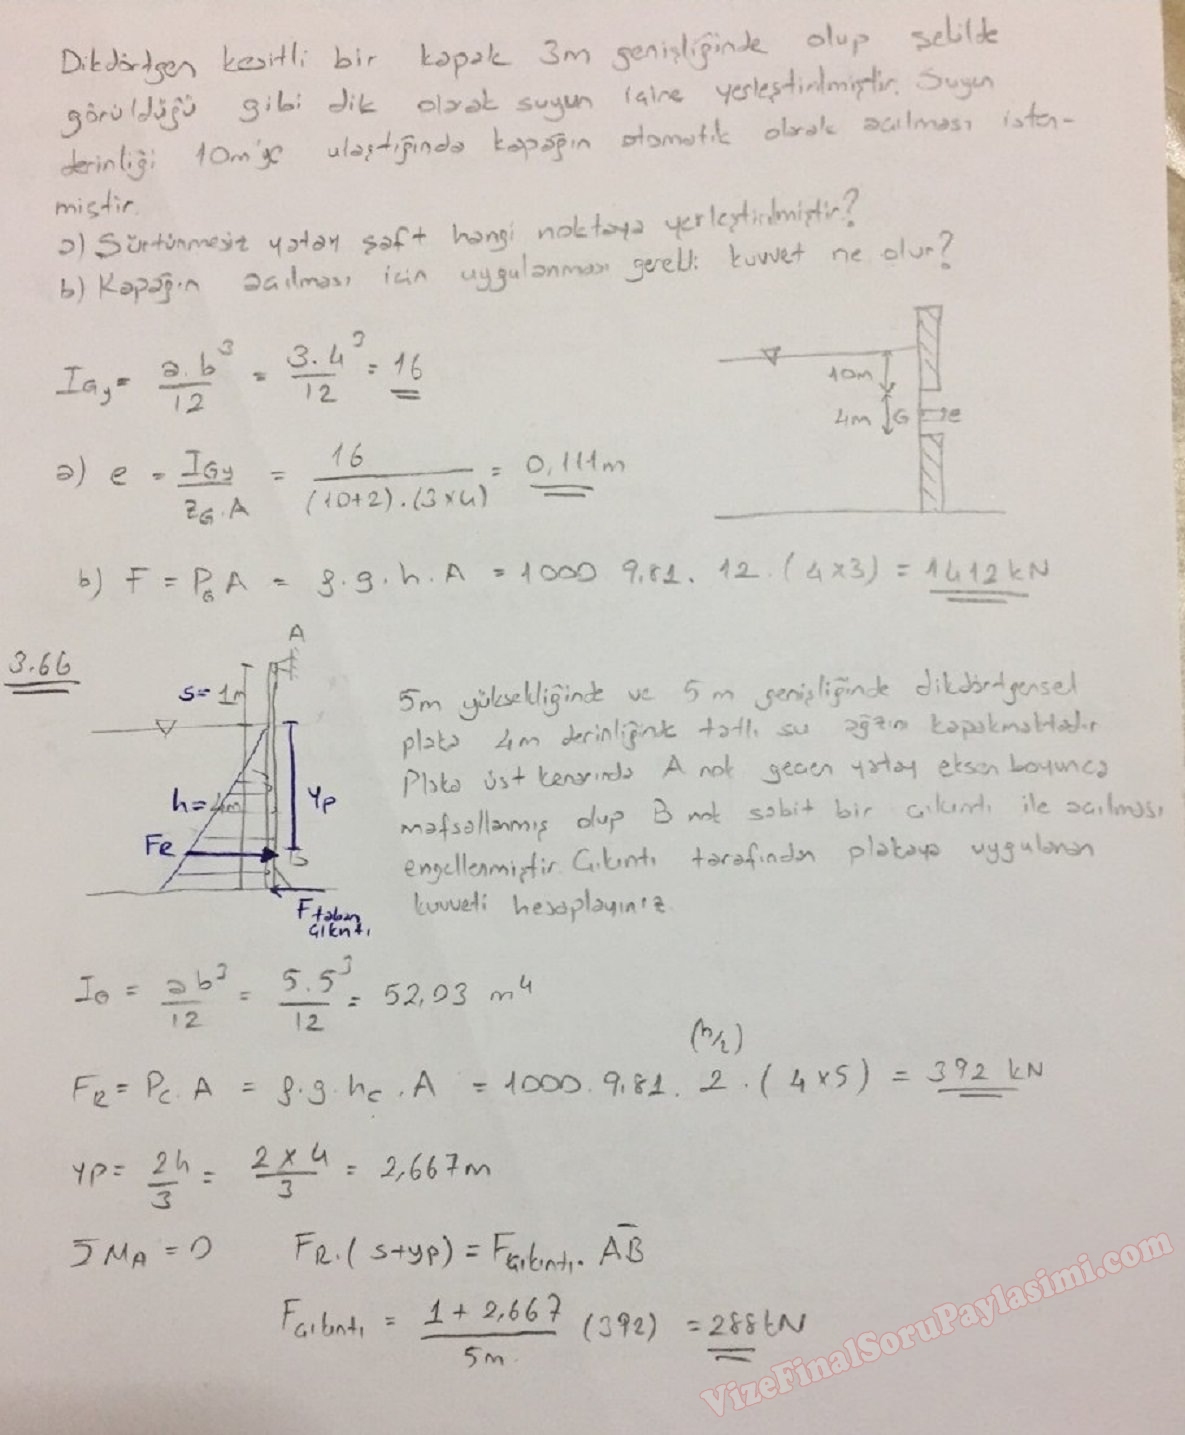 Dikdörtgen kesitli bir kapak 3m genişliğinde olup şekilde
görüldüğü gibi dik olarak suyun içine yerleştirilmiştir. Suyun
derinliği 10m'ye ulaştığında kapağın otomatik olarak açılması isten-
miştir.
a) Sürtünmesiz yatay şaft hangi noktaya yerleştirilmiştir?
b) Kapağın açılması için uygulanması gerekli kuvvet ne olur?
I_Gy = a.b³/12 = 3.4³/12 = 16
10m
4m G e
a) e = I_Gy/(z_G.A) = 16/((10+2).(3x4)) = 0,111m
b) F = P_G A = ρ.g.h.A = 1000 9,81. 12.(4x3) = 1412 kN
3.66
A
s=1m
h=4m
yp
Fe
B
F taban çıkıntı
5m yüksekliğinde ve 5m genişliğinde dikdörtgensel
plaka 4m derinliğinde tatlı su ağzını kapakmaktadır
Plaka üst kenarında A nok geçen yatay eksen boyunca
mafsallanmış olup B nok sabit bir çıkıntı ile açılması
engellenmiştir. Çıkıntı tarafından plakaya uygulanan
kuvveti hesaplayınız.
I_0 = ab³/12 = 5.5³/12 = 52,03 m⁴
(h/2)
F_R = P_C.A = ρ.g.h_c.A = 1000.9,81. 2.(4x5) = 392 kN
yp = 2h/3 = 2x4/3 = 2,667m
ΣM_A = 0 F_R.(s+yp) = F_çıkıntı. AB
F_çıkıntı = (1+2,667)/5m (392) = 288kN
VizeFinalSoruPaylasimi.com